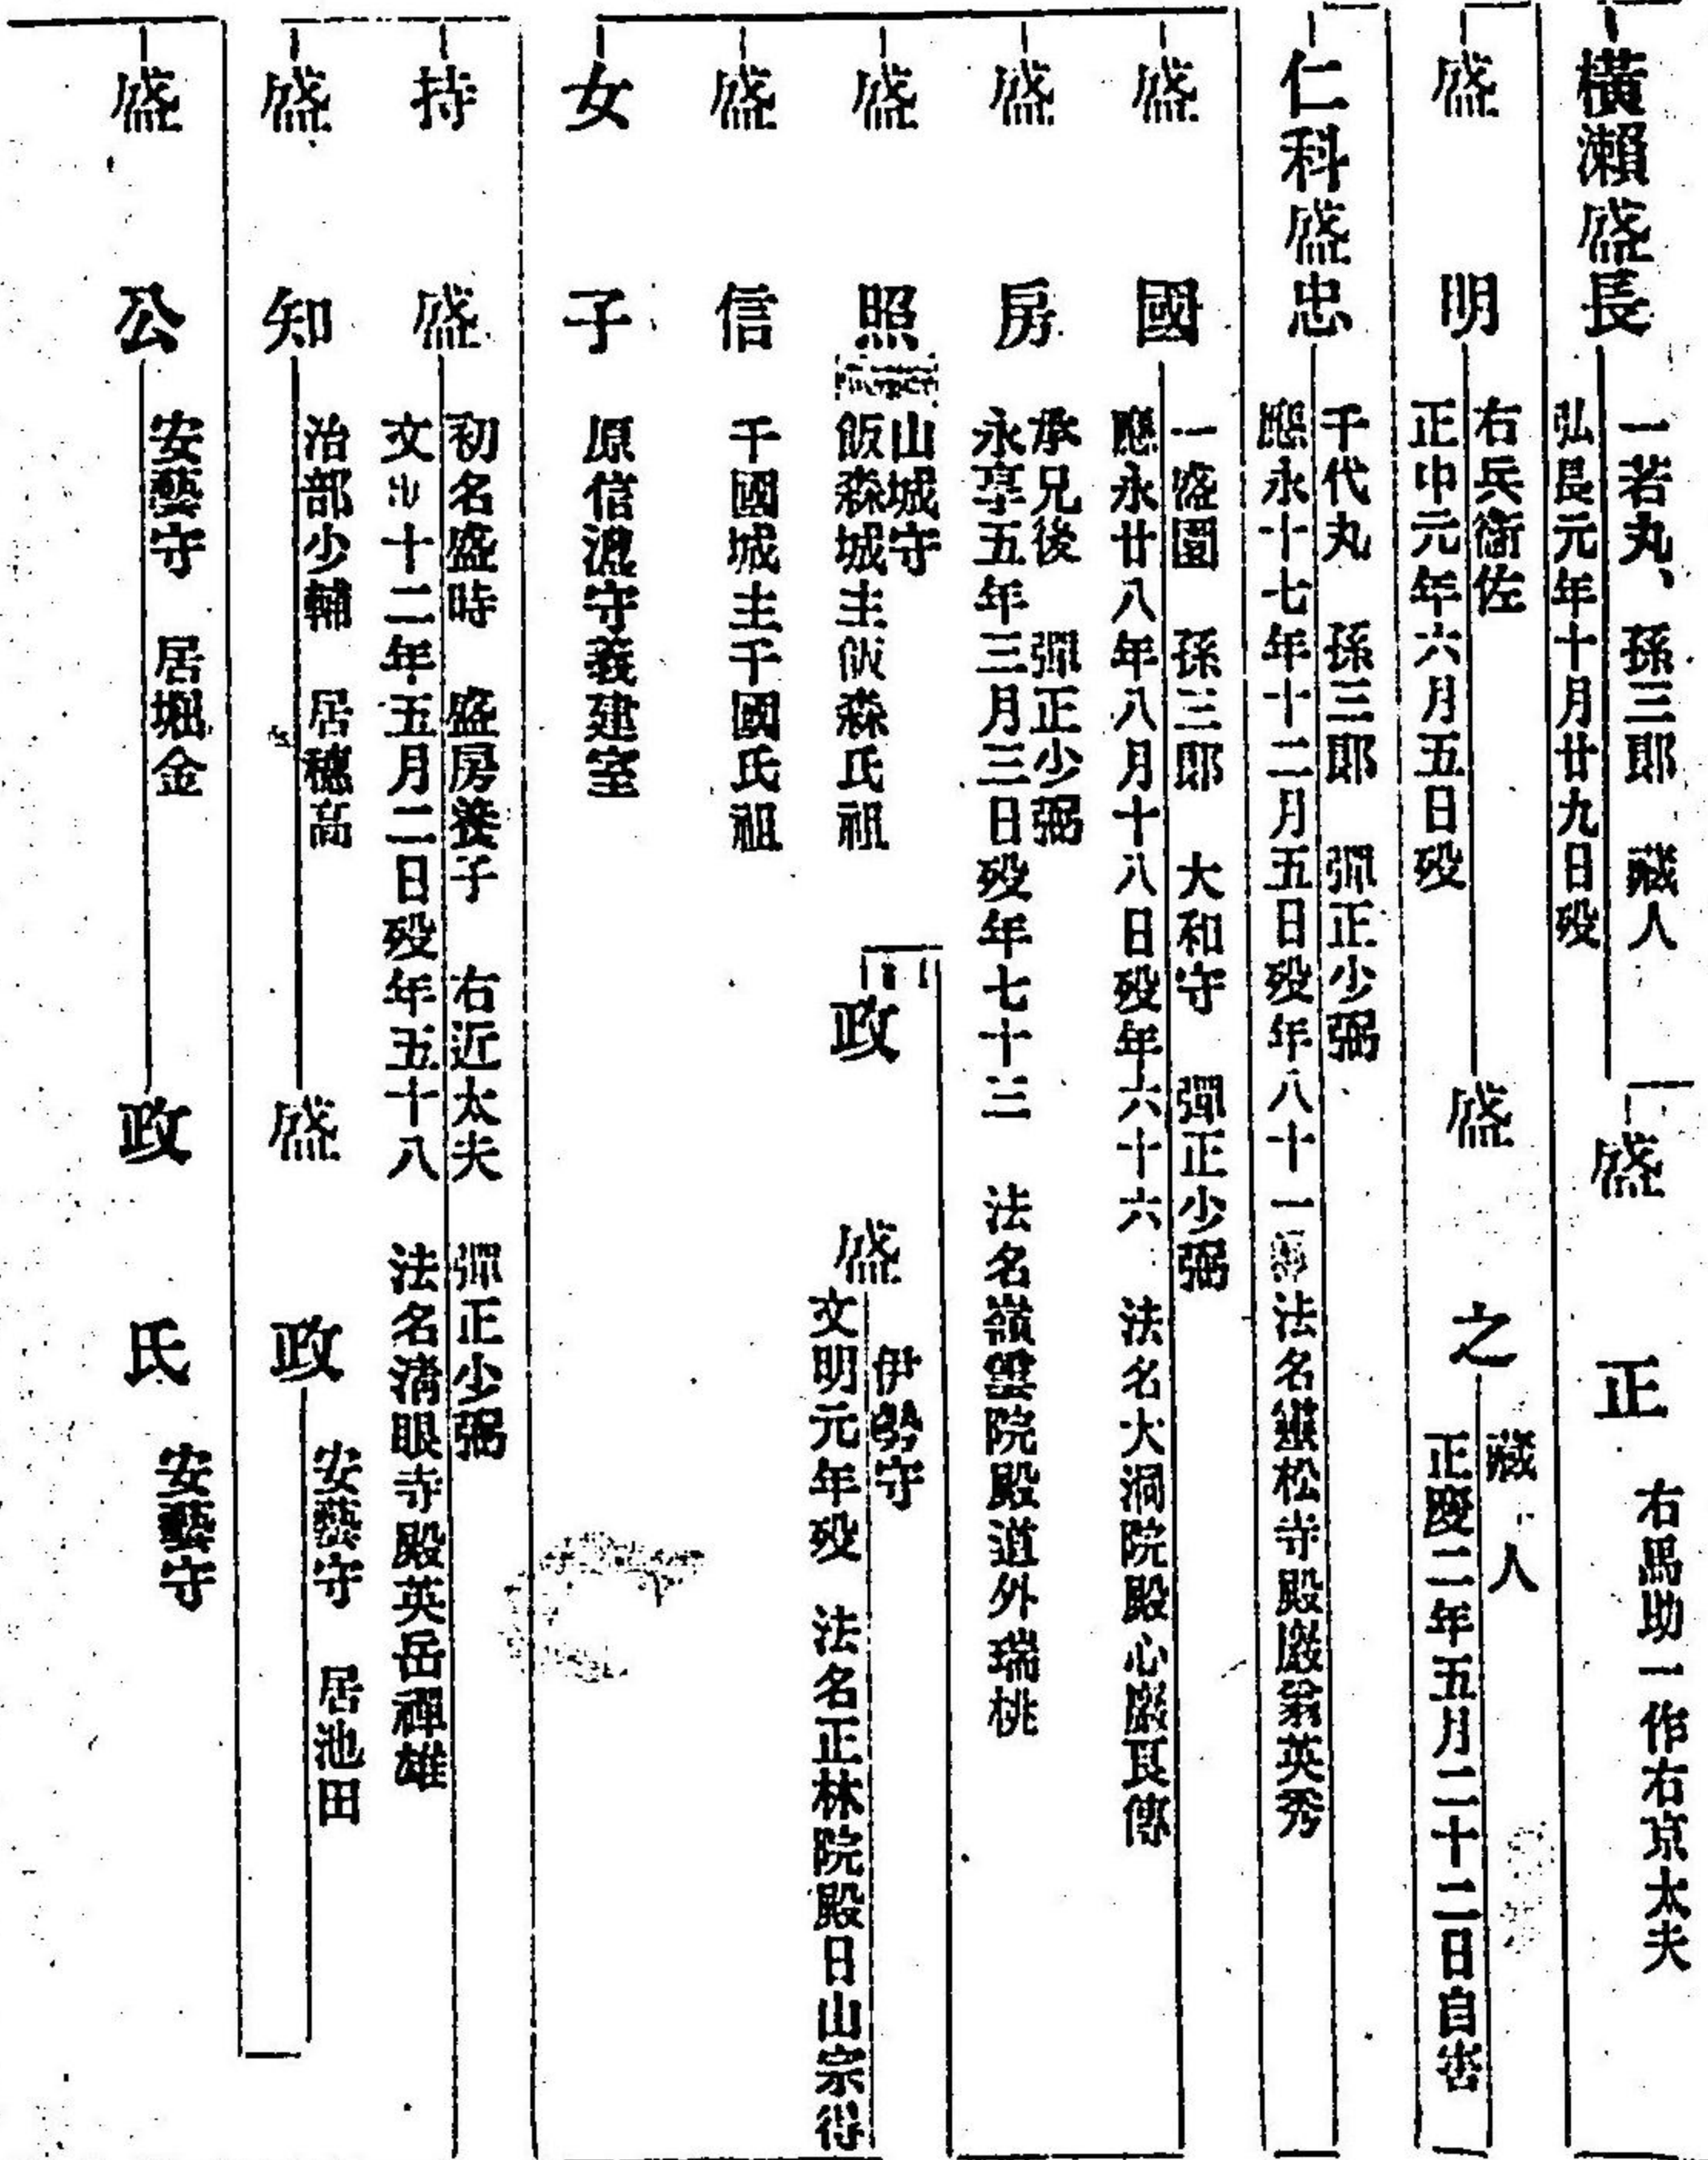 横瀨盛長
一若丸、孫三郎　藏人
弘長元年十月廿九日歿
盛正
右馬助一作右京太夫
盛明
右兵衞佐
正中元年六月五日歿
盛之
藏人
正慶二年五月二十二日自害
仁科盛忠
千代丸　孫三郎　彈正少弼
應永十七年十二月五日歿年八十一
法名靈松寺殿巖翁英秀
盛國
一盛園　孫三郎　大和守　彈正少弼
應永廿八年八月十八日歿年六十六　法名大洞院殿心巖良傳
盛房
承兄後　彈正少弼
永享五年三月三日歿年七十三　法名嶺雲院殿道外瑞桃
盛照
山城守
飯森城主飯森氏祖
政盛
伊勢守
文明元年歿　法名正林院殿日山宗得
盛信
千國城主千國氏祖
女子
原信濃守義建室
持盛
初名盛時　盛房養子　右近太夫　彈正少弼
文　十二年五月二日歿年五十八　法名淸眼寺殿英岳禪雄
盛知
治部少輔　居穗高
盛政
安藝守　居池田
盛公
安藝守　居堀金
政氏
安藝守